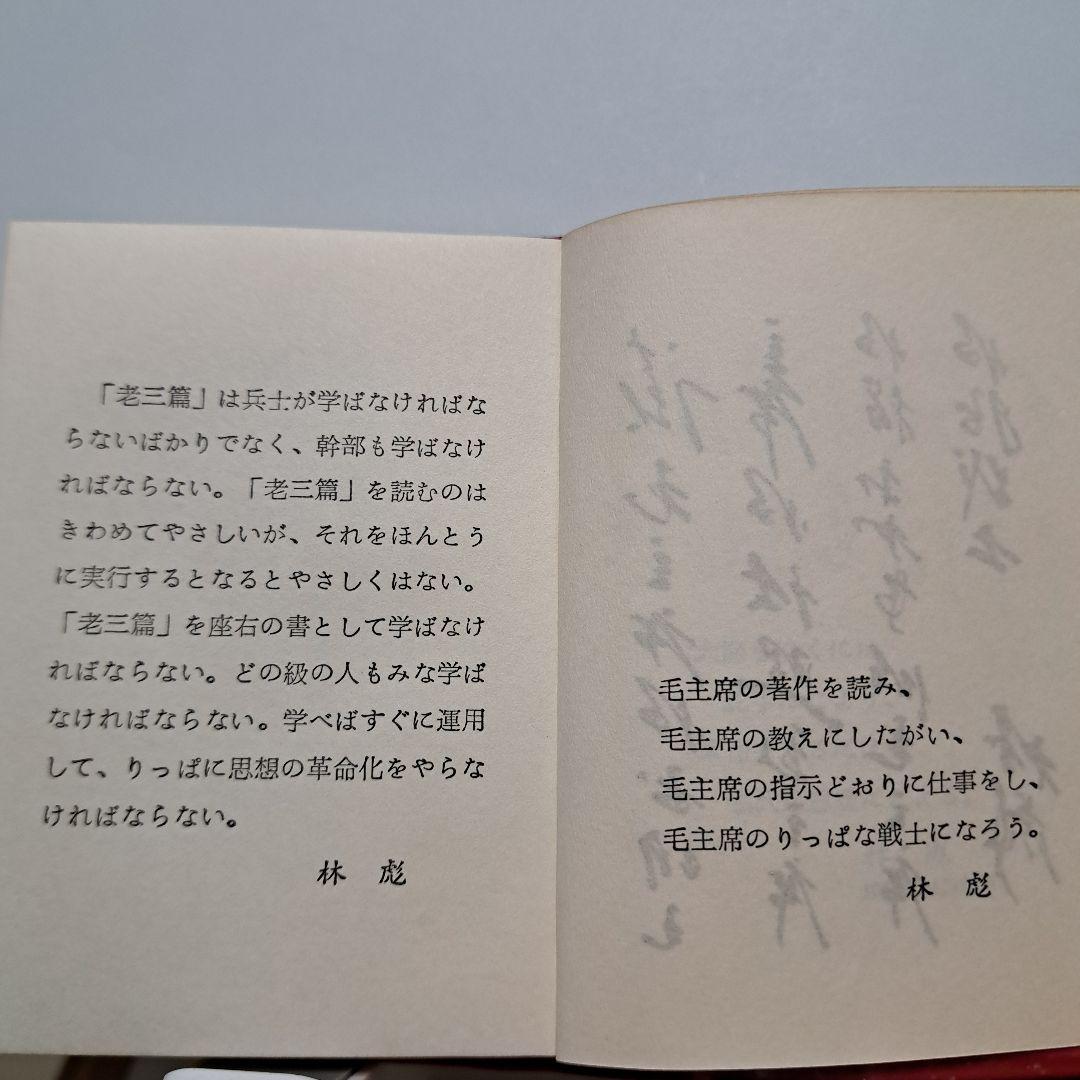 「老三篇」は兵士が学ばなければな
らないばかりでなく、幹部も学ばなけ
ればならない。「老三篇」を読むのは
きわめてやさしいが、それをほんとう
に実行するとなるとやさしくはない。
「老三篇」を座右の書として学ばなけ
ればならない。どの級の人もみな学ば
なければならない。学べばすぐに運用
して、りっぱに思想の革命化をやらな
ければならない。
林 彪
毛主席の著作を読み、
毛主席の教えにしたがい、
毛主席の指示どおりに仕事をし、
毛主席のりっぱな戦士になろう。
林 彪